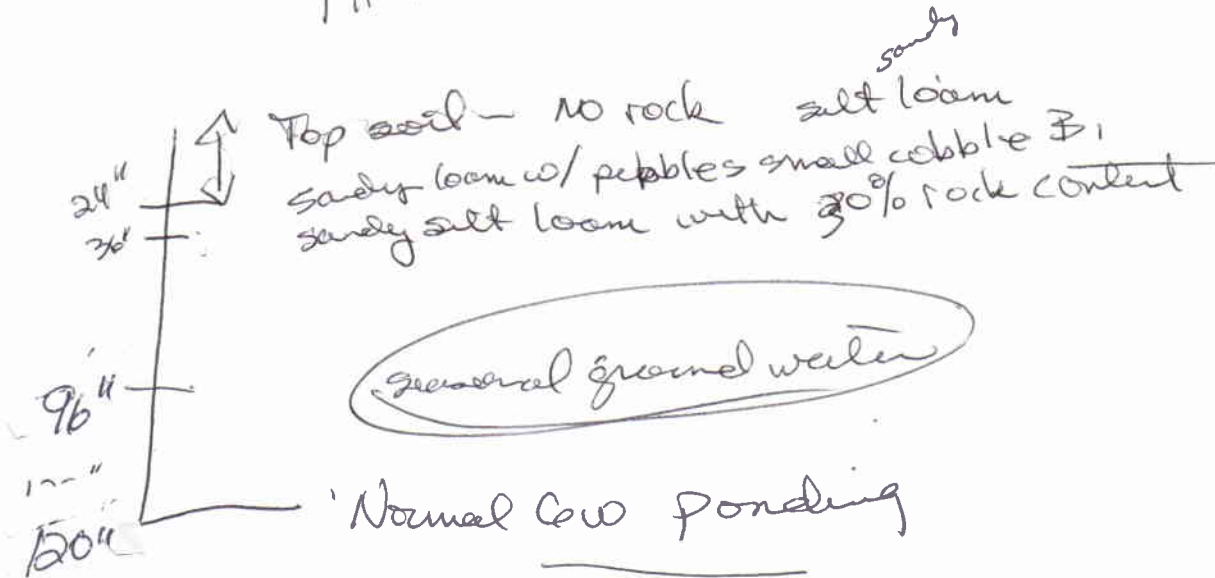 sandy
Top soil - NO rock silt loam
sandy loam w/ pebbles small cobble B1
24"
sandy silt loam with 30% rock content
36"
seasonal ground water
96"
Normal GW ponding
120"